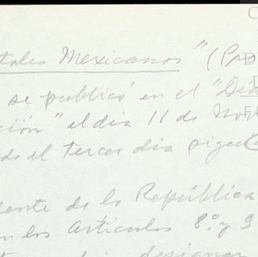 tales Mexicanos" (P
se publicó en el "Dia
ción" el día 11 de Nov
do el tercer día sigui
ente de la República
en los Artículos 8º y 9
designar